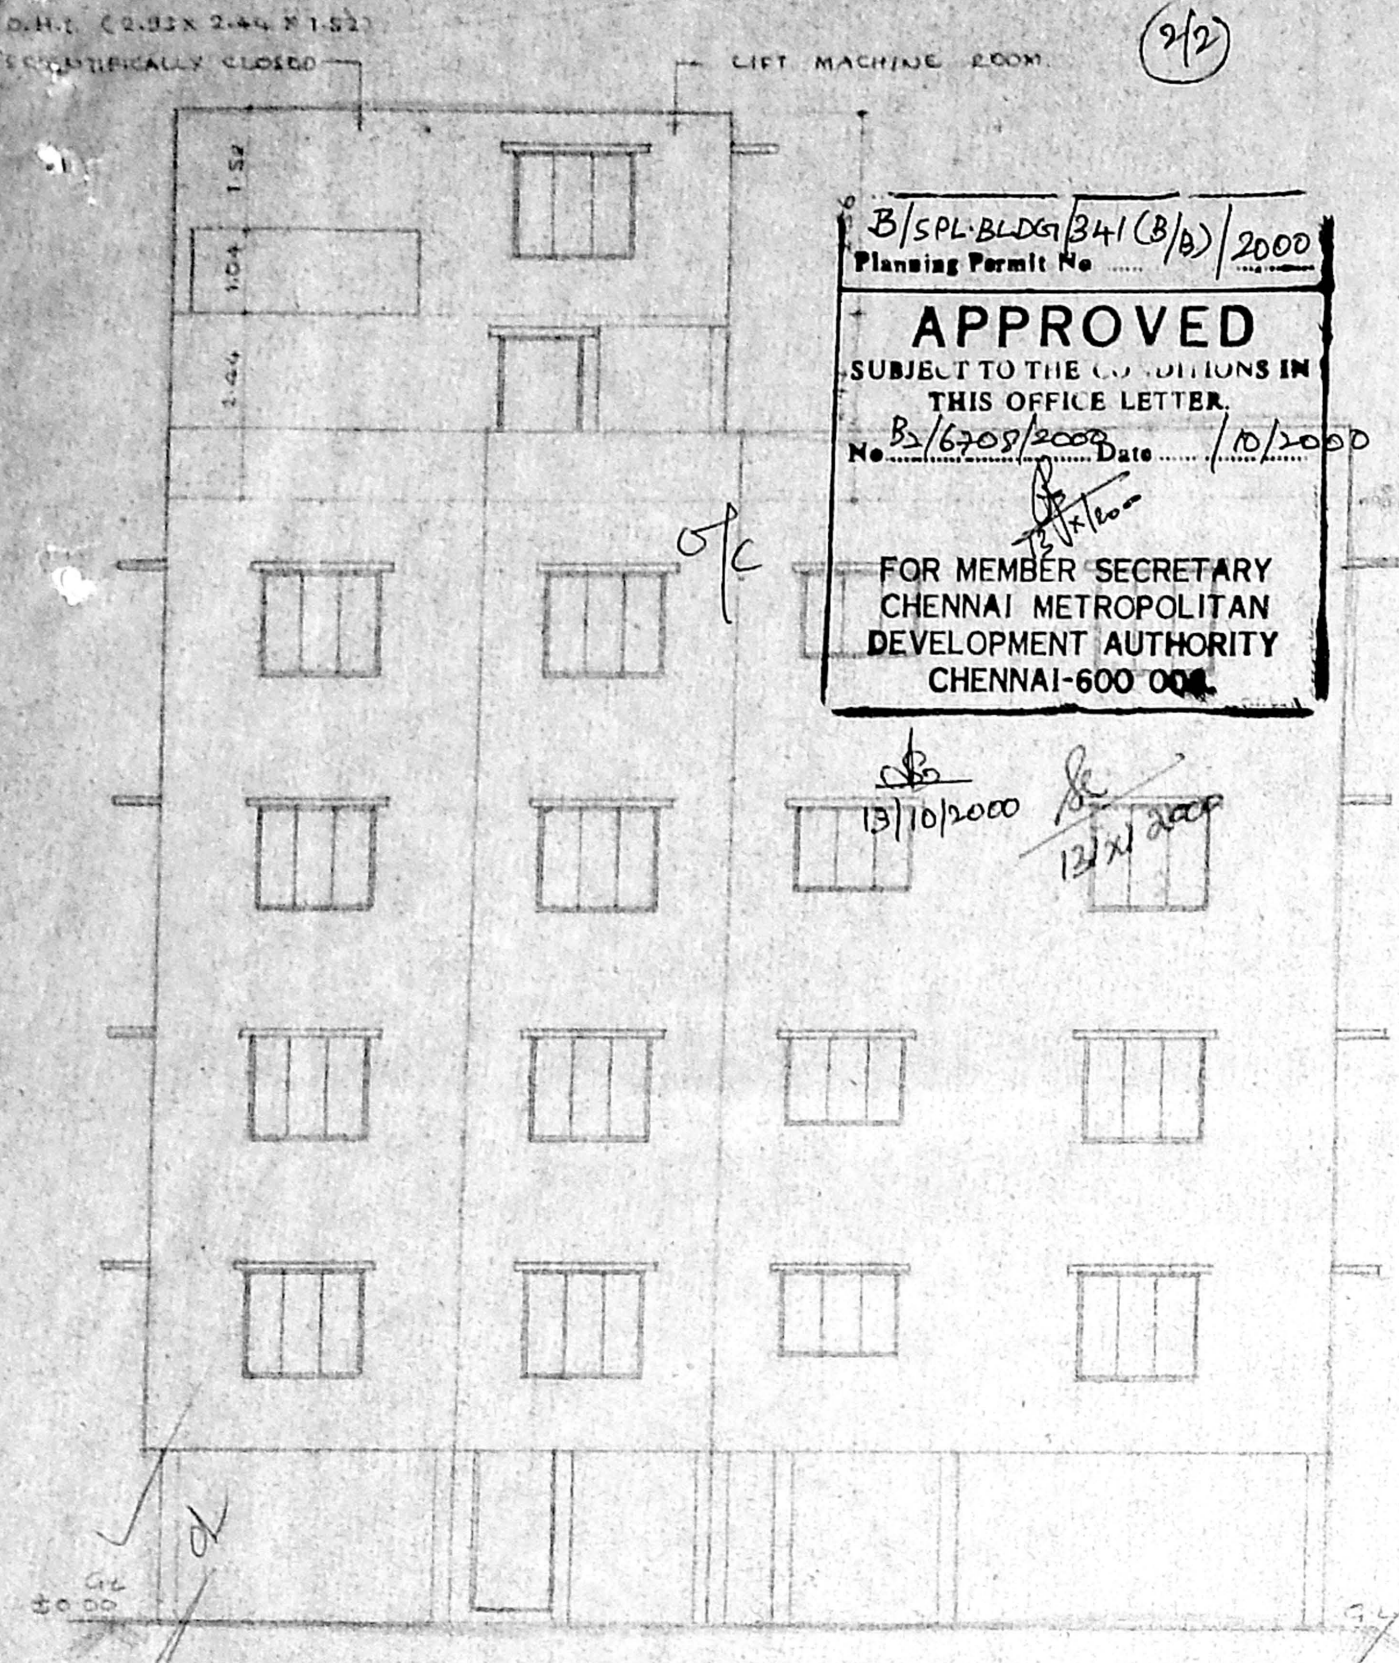 O.H.T. (2.93 x 2.44 x 1.52)
SCIENTIFICALLY CLOSED
LIFT MACHINE ROOM
2/2
1.52
1.04
2.44
B/SPL.BLDG/341(B/B)/2000
Planning Permit No
APPROVED
SUBJECT TO THE CONDITIONS IN
THIS OFFICE LETTER.
No B2/6708/2000 Date /10/2000
FOR MEMBER SECRETARY
CHENNAI METROPOLITAN
DEVELOPMENT AUTHORITY
CHENNAI-600 00
o/c
13/10/2000
13/X/2000
GL
±0.00
GL